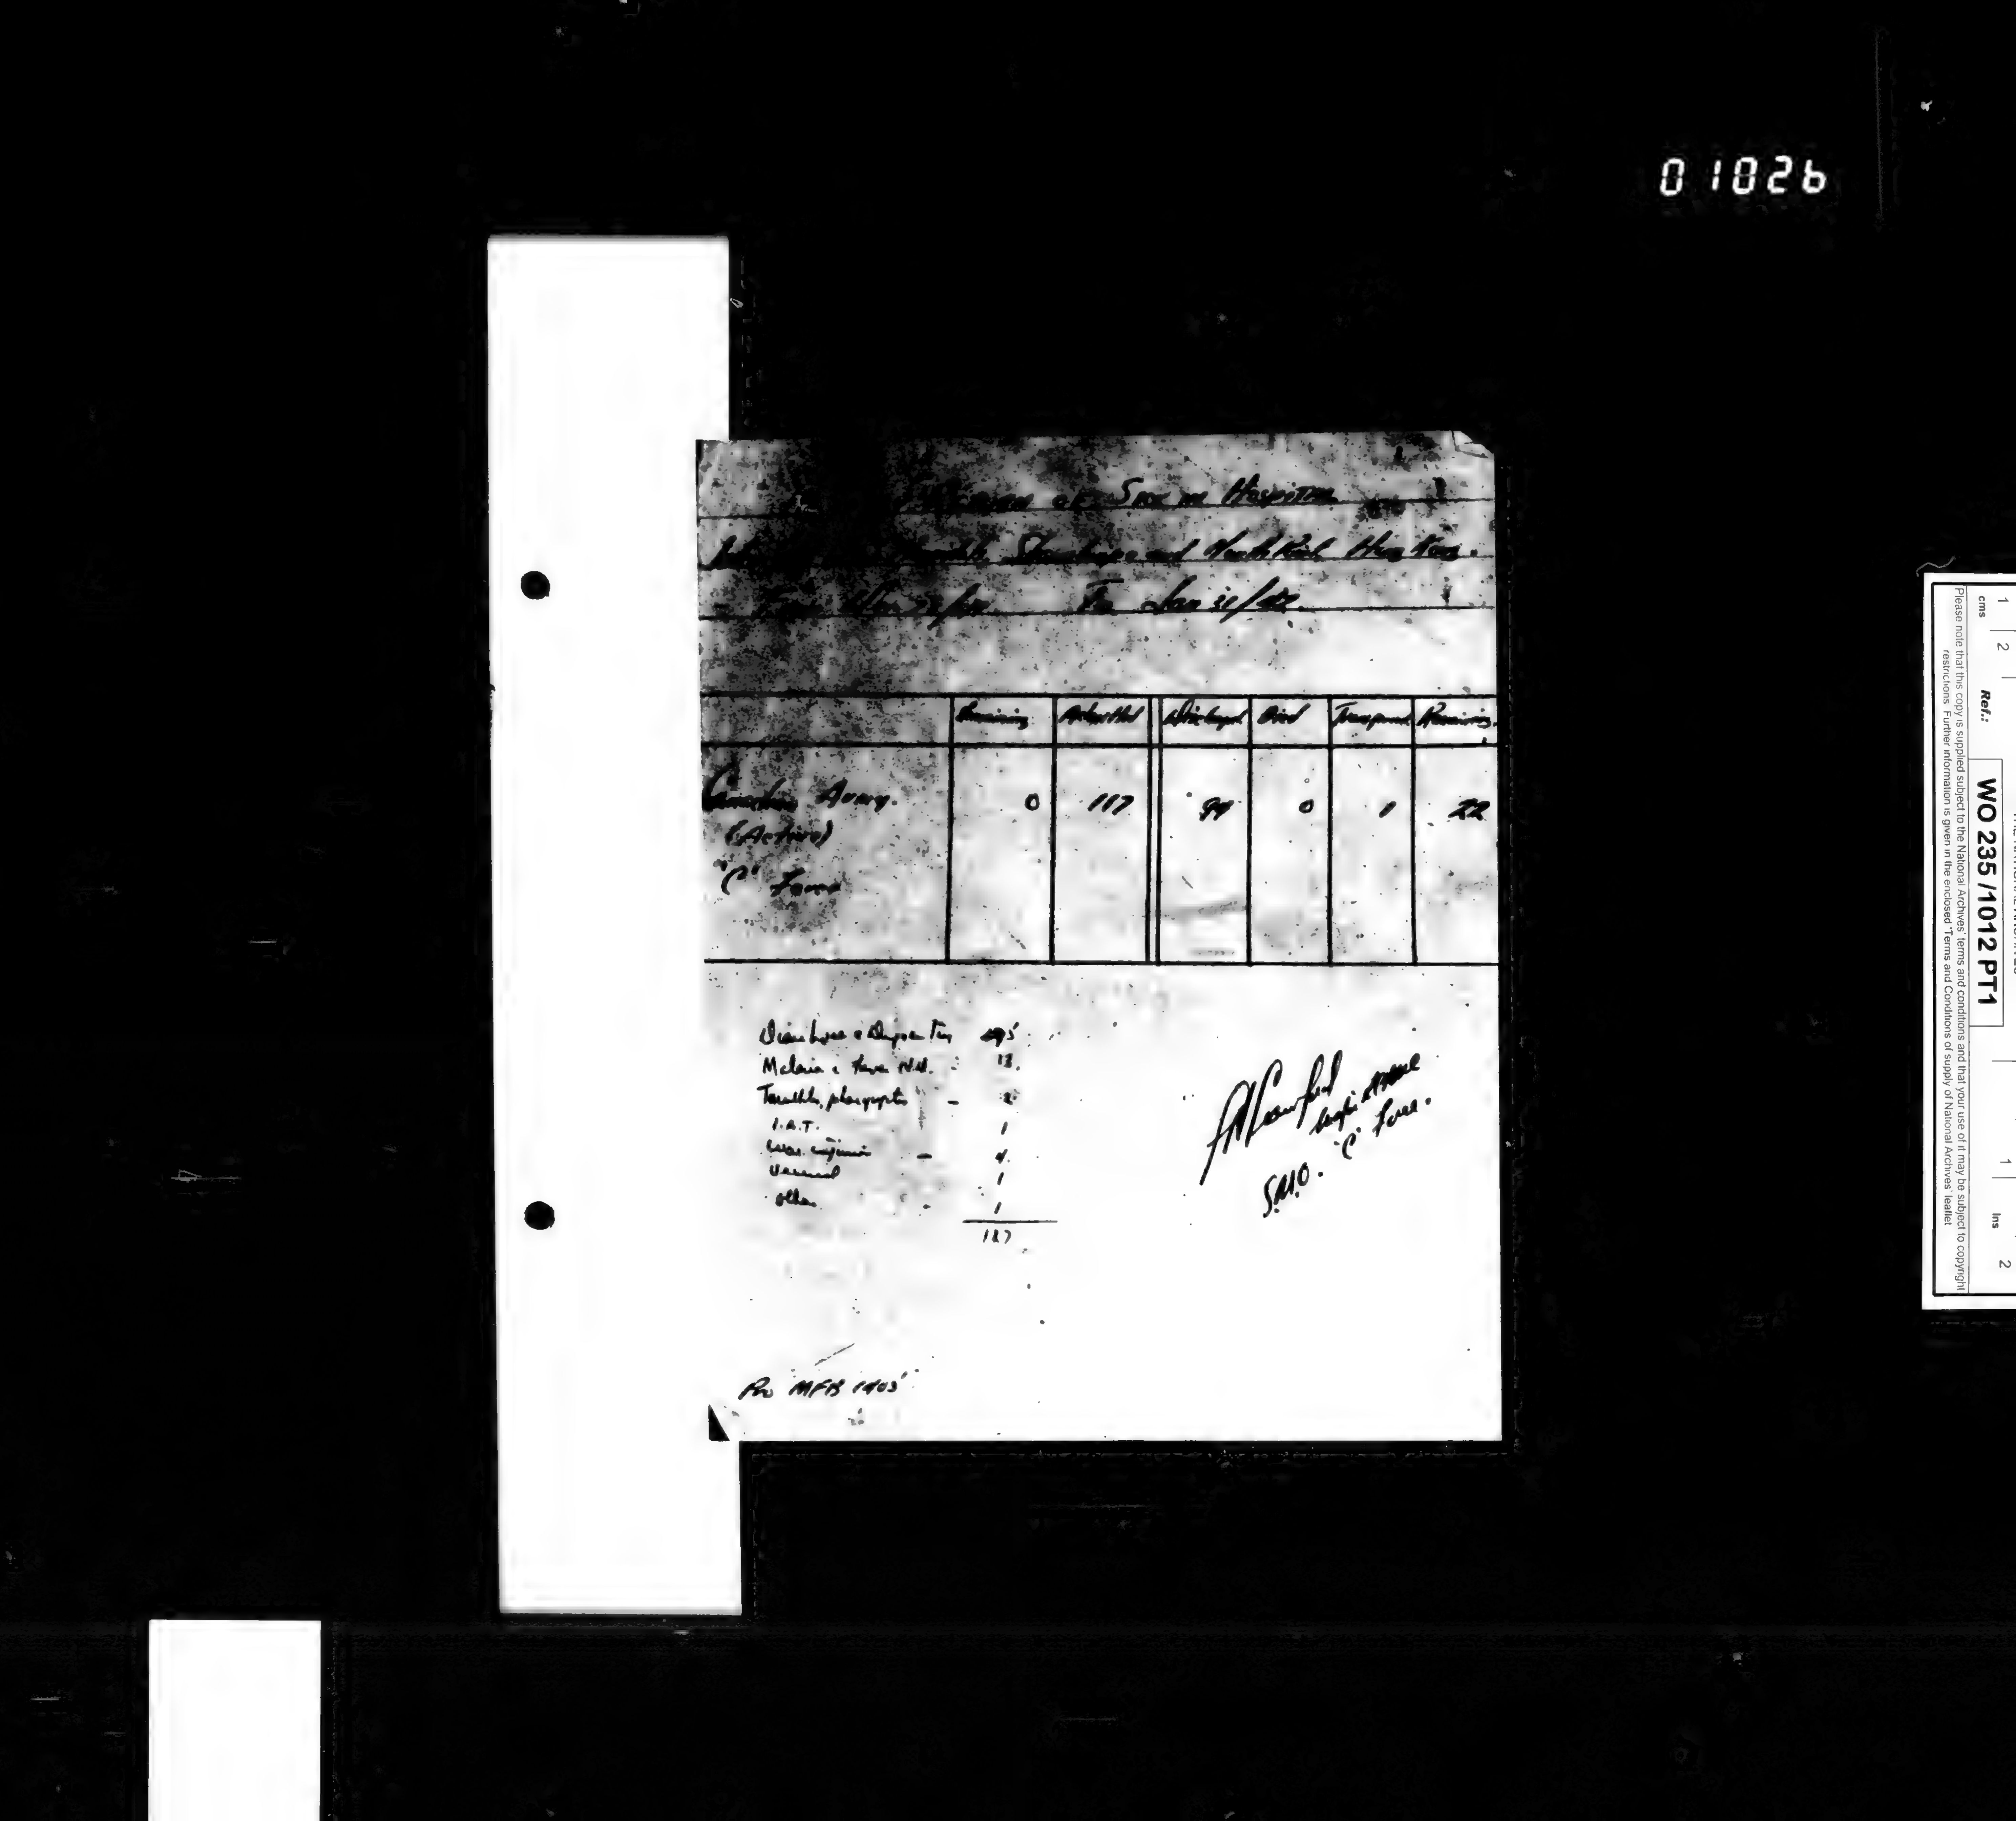 01026
of Sick in Hospital
Shamshuipo and North Point Hong Kong.
To Jan 31/42.
Remaining Admitted Discharged Died Transferred Remaining
Canadian Army. 0 117 94 0 1 22
(Active)
"C" Force
Diarrhoea & Dysentery 95
Malaria & Fever N.Y.D. - 13.
Tonsillitis, pharyngitis - 2
I.A.T. 1
War injuries - 4
Venereal 1
Other - 1
117
Crawford
Major RCAMC
S.M.O. "C" Force.
Pro MFB 1405
cms 1 2
Ref.: WO 235 /1012 PT1
1 Ins 2
Please note that this copy is supplied subject to the National Archives' terms and conditions and that your use of it may be subject to copyright
restrictions. Further information is given in the enclosed 'Terms and Conditions of supply of National Archives' leaflet